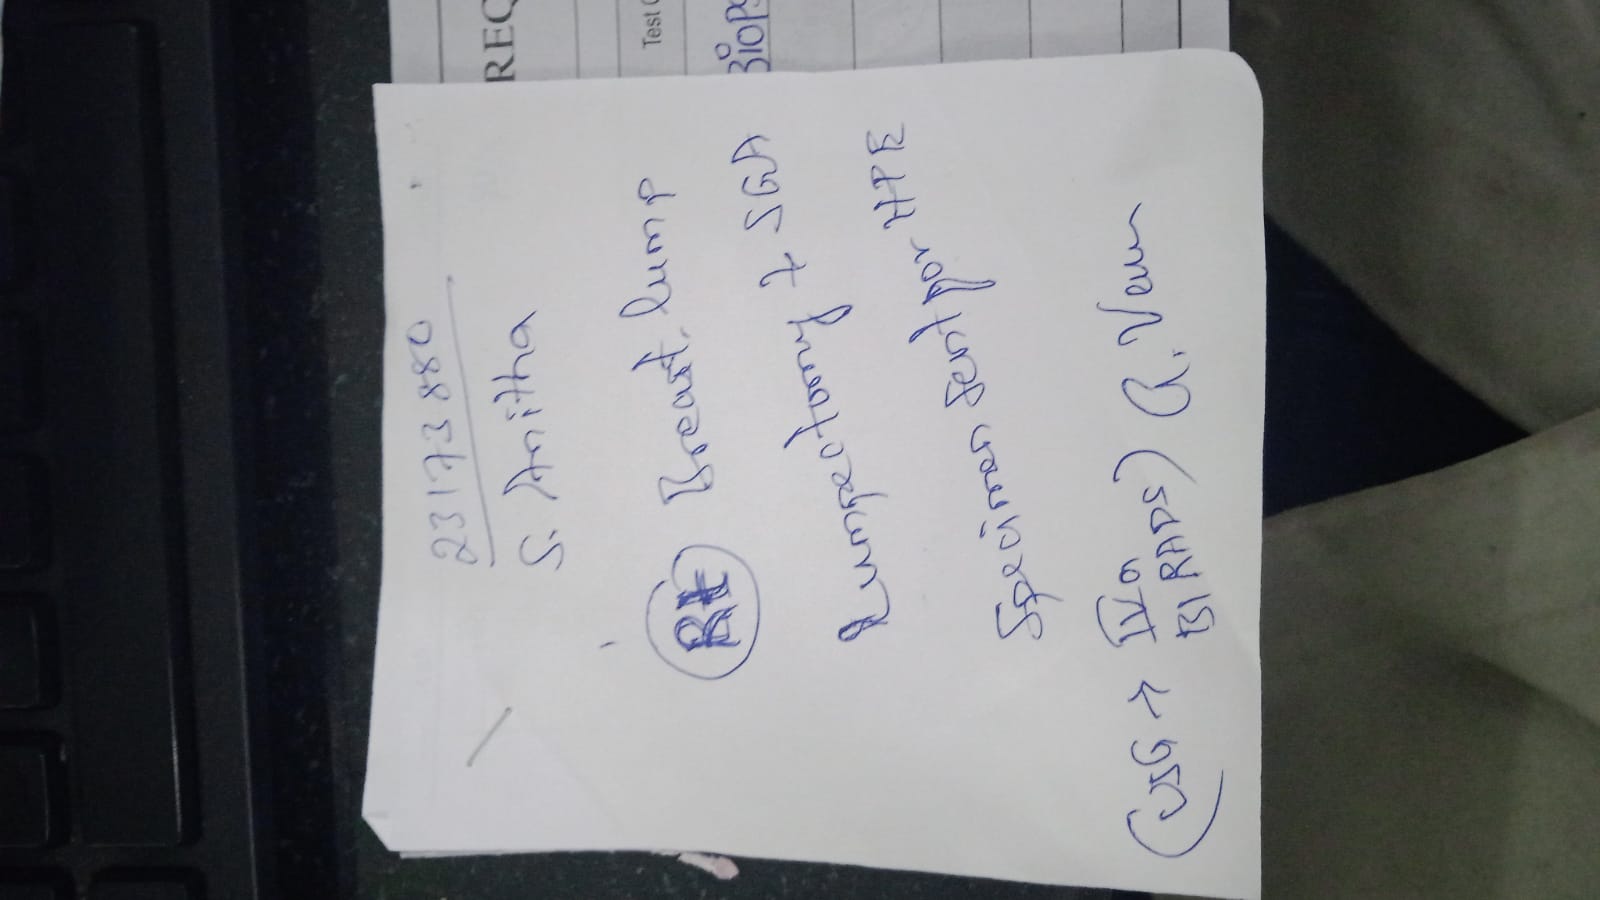 REQ
Test
Biops
23173880
S. Anitha
Rt breast lump
Lumpectomy + SGA
Specimen sent for HPE
(USG → IVa
BIRADS)